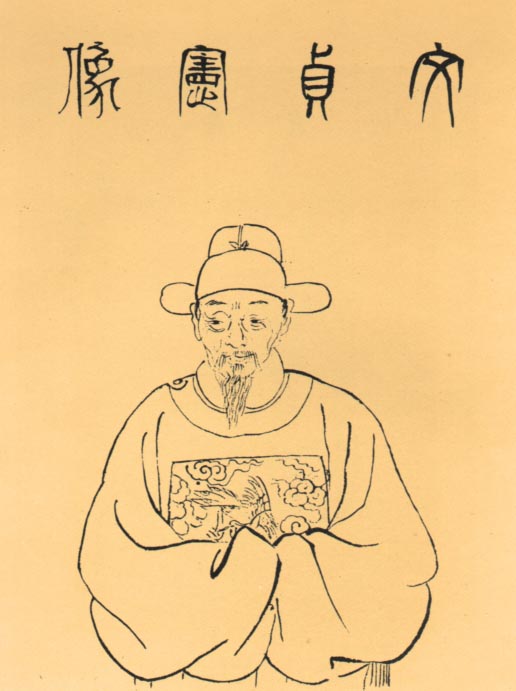 文貞憲像